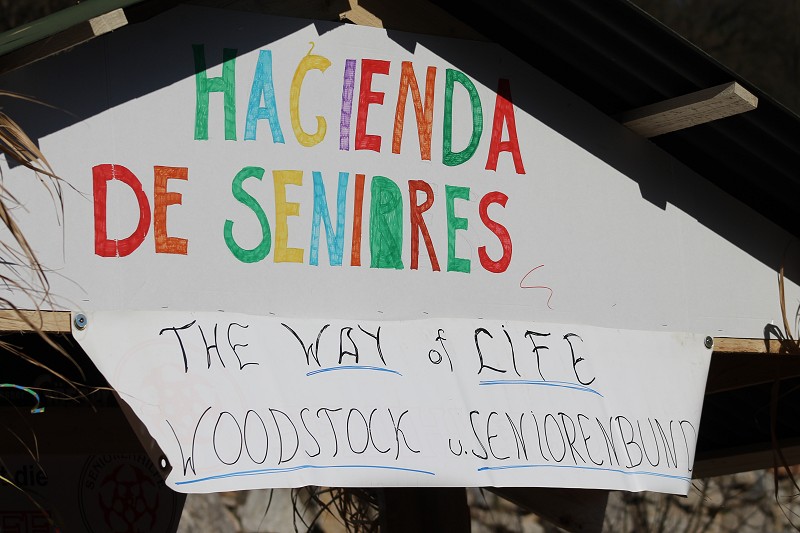 HACIENDA
DE SENIORES
THE WAY of LIFE
WOODSTOCK u. SENIORENBUND
die